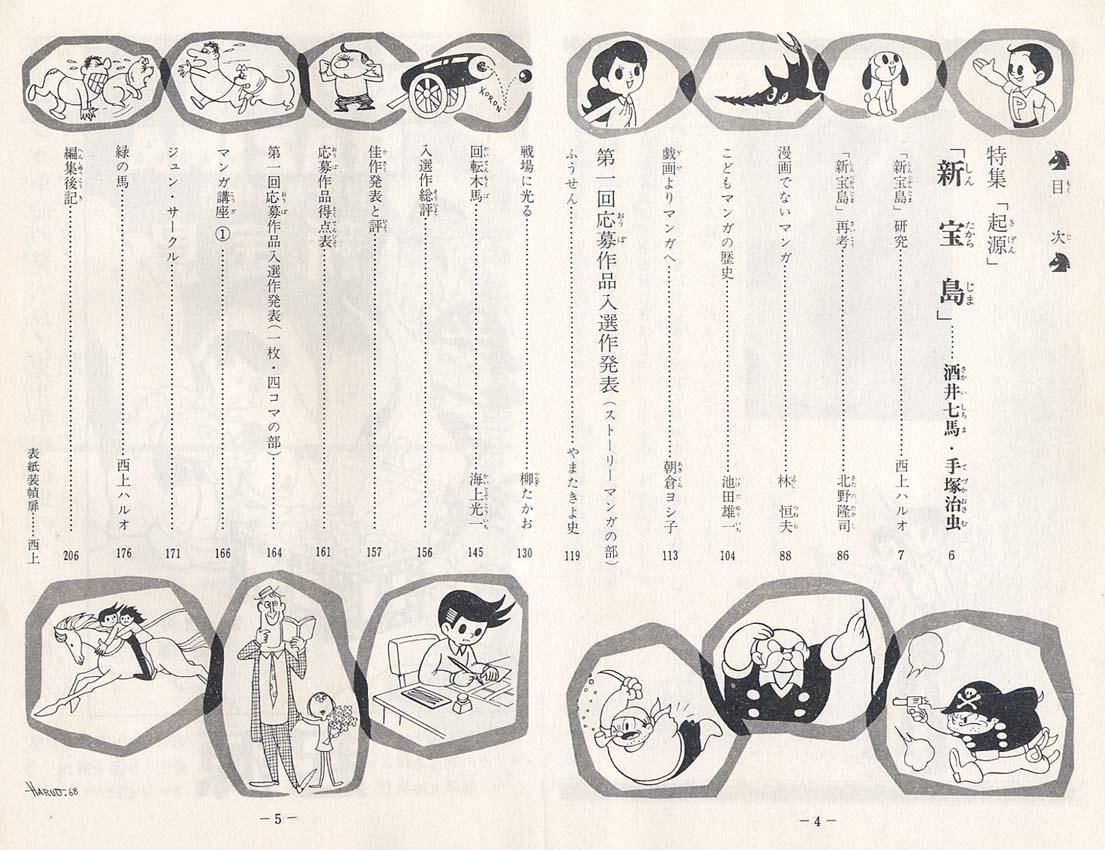 目次
特集「起源」
「新宝島」……酒井七馬・手塚治虫 6
「新宝島」研究……西上ハルオ 7
「新宝島」再考……北野隆司 86
漫画でないマンガ……林 恒夫 88
こどもマンガの歴史……池田雄一 104
戯画よりマンガへ……朝倉ヨシ子 113
第一回応募作品入選作発表(ストーリーマンガの部)
ふうせん……やまたきよ史 119
戦場に光る……柳たかお 130
回転木馬……海上光一 145
入選作総評…… 156
佳作発表と評…… 157
応募作品得点表…… 161
第一回応募作品入選作発表(一枚・四コマの部)…… 164
マンガ講座①…… 166
ジュン・サークル…… 171
緑の馬……西上ハルオ 176
編集後記…… 206
表紙装幀扉……西上
KORON
P
HARUO-68
－5－
－4－